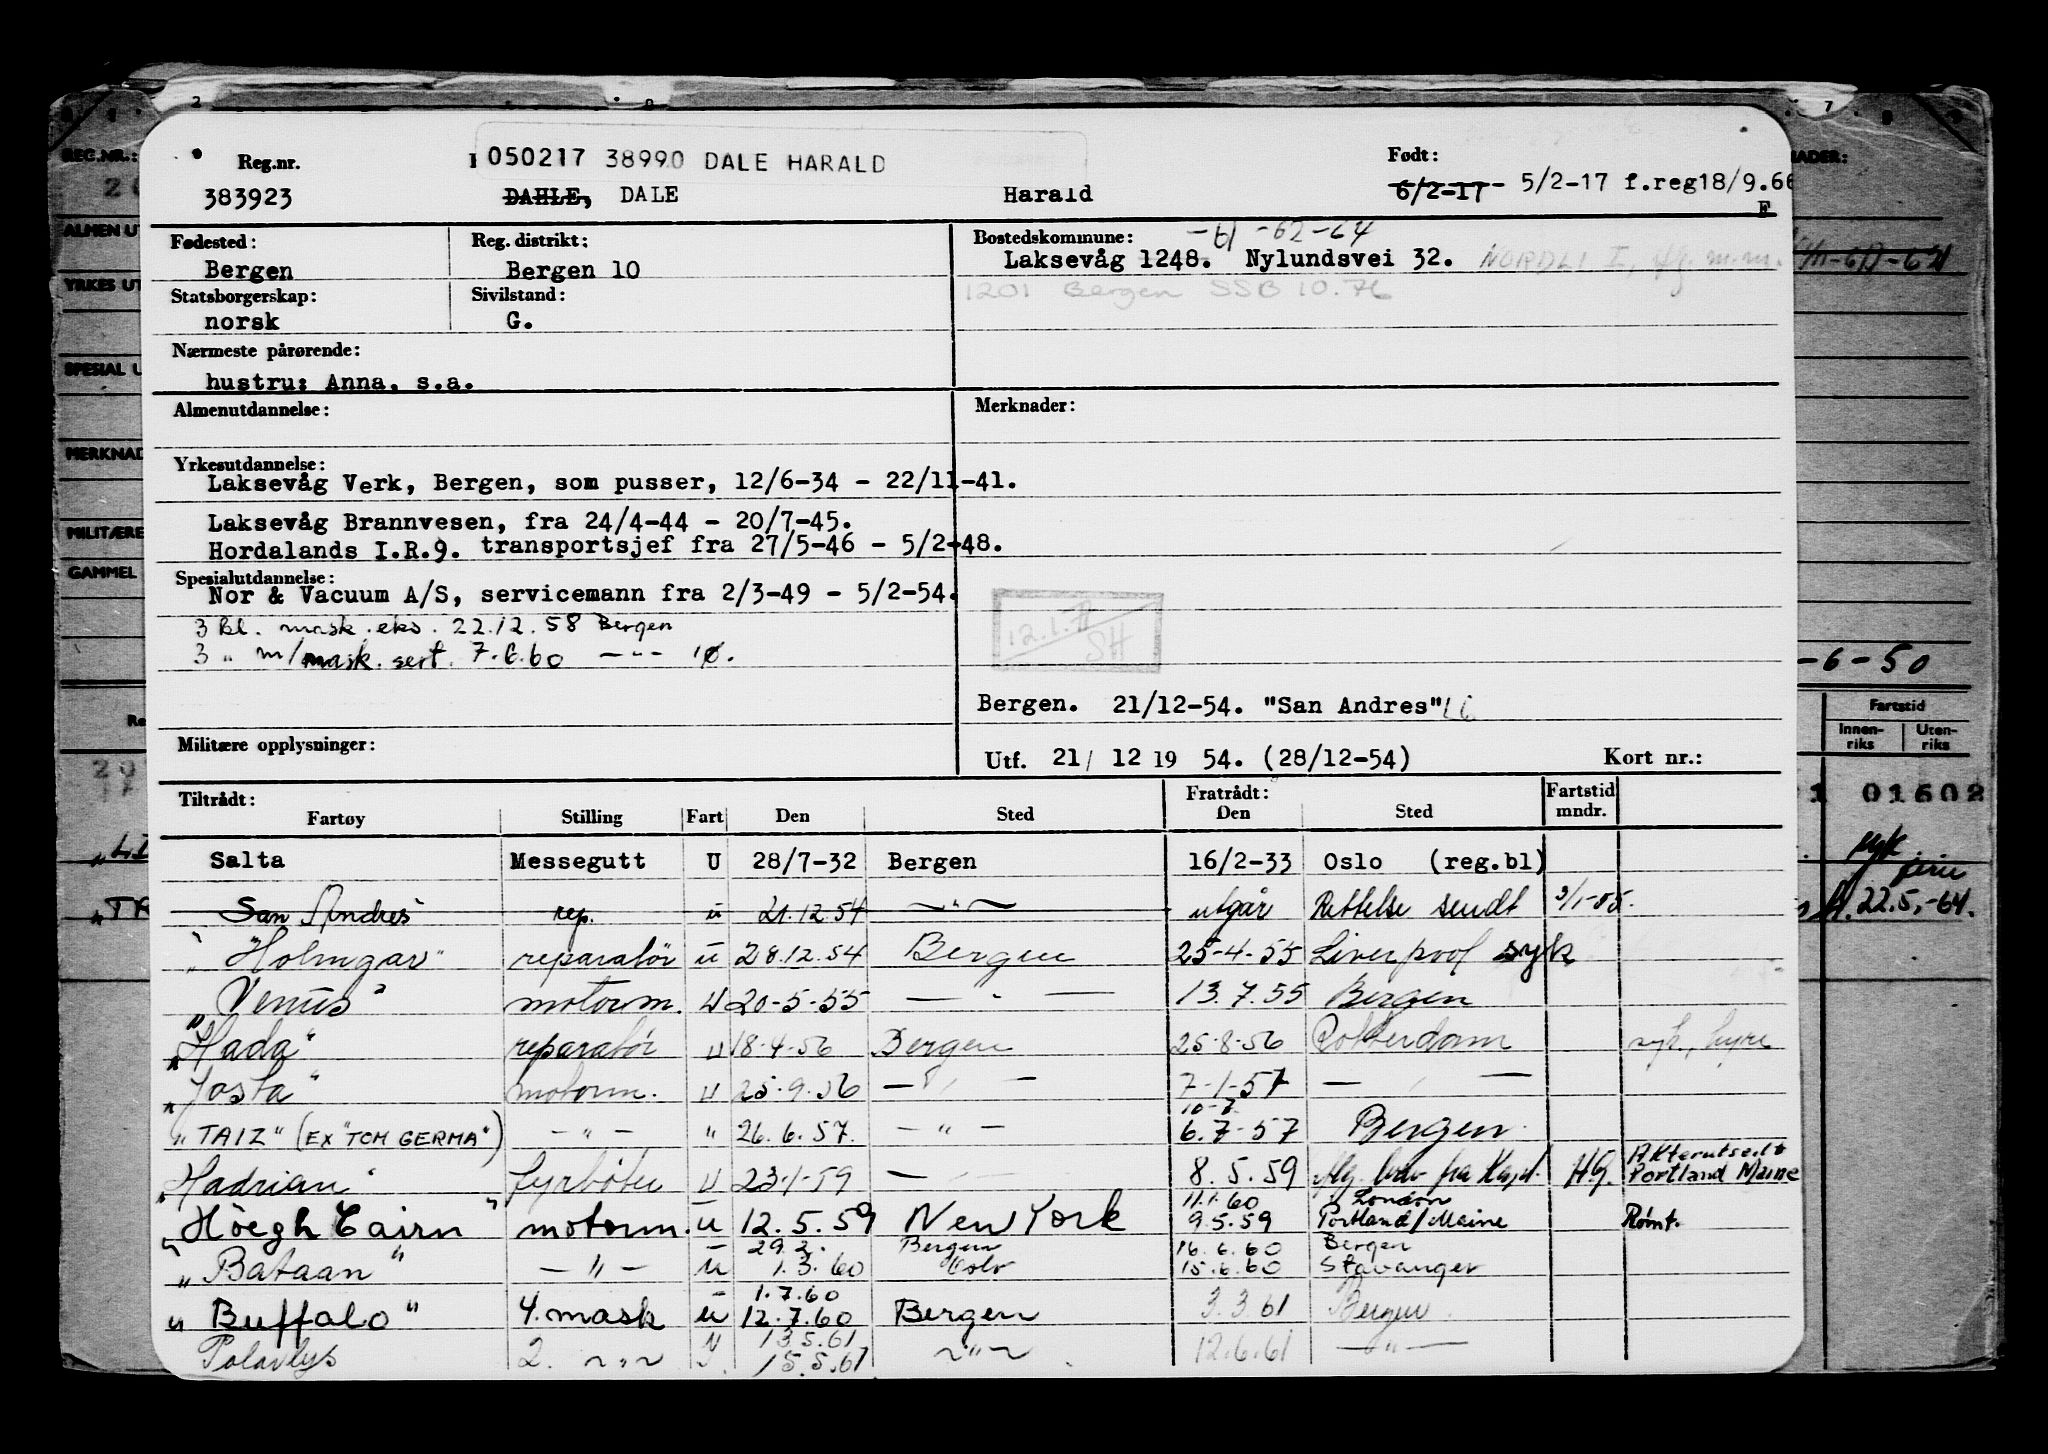 Reg.nr. 050217 38990 DALE HARALD Født:
383923 DAHLE, DALE Harald 6/2-17 5/2-17 f.reg18/9.66
F
Fødested: Reg. distrikt: Bostedskommune: -61 -62-64
Bergen Bergen 10 Laksevåg 1248. Nylundsvei 32. NORDLI I,
Statsborgerskap: Sivilstand: 1201 Bergen SSB 10.76
norsk G.
Nærmeste pårørende:
hustru: Anna, s.a.
Almenutdannelse: Merknader:
Yrkesutdannelse:
Laksevåg Verk, Bergen, som pusser, 12/6-34 - 22/11-41.
Laksevåg Brannvesen, fra 24/4-44 - 20/7-45.
Hordalands I.R.9. transportsjef fra 27/5-46 - 5/2-48.
Spesialutdannelse:
Nor & Vacuum A/S, servicemann fra 2/3-49 - 5/2-54.
3 Bl. mask. eks. 22.12.58 Bergen
3 " m/mask. sert. 7.6.60 - " -
SH
Bergen. 21/12-54. "San Andres"
Militære opplysninger: Utf. 21/ 12 19 54. (28/12-54) Kort nr.:
Tiltrådt: Fratrådt: Fartstid
Fartøy Stilling Fart Den Sted Den Sted mndr.
Salta Messegutt U 28/7-32 Bergen 16/2-33 Oslo (reg.bl)
San Andres rep. u 21.12.54 - " - utgår Rettelse sendt 3/1-55.
"Holmgar" reparatør u 28.12.54 Bergen 25-4-55 Liverpool syk
"Venus" motorm. U 20-5-55 - " - 13.7.55 Bergen
"Hada" reparatør u 18-4-56 Bergen 25-8-56 Rotterdam
"Josta" motorm. u 25.9.56 - " - 7-1-57 - " -
10-7
"TAIZ" (EX "TOM GERMA") - " - " 26.6.57. - " - 6.7-57 Bergen.
Akterutseilt
"Hadrian" fyrbøter U 23-1-59 - " - 8.5.59 flg. brev fra Kapt. HG. Portland Maine
11.1.60 London
"Höegh Cairn" motorm. u 12.5.59 New York 9.5.59 Portland/Maine Rømt.
29.2. Bergen 16.6.60 Bergen
"Bataan" - " - u 1.3.60 Oslo 15.6.60 Stavanger
1.7.60
"Buffalo" 4. mask u 12.7.60 Bergen 3.3.61 Bergen.
13.5.61
Polarlys 2. - " - 15.5.61 - " - 12.6.61 - " -
REG.NR.:
ALMEN U
YRKES UT
SPESIAL U
MERKNAD
MILITÆRE
GAMMEL
-6-50
Fartstid
Innen-riks Uten-riks
01602
syk
22.5.-64.